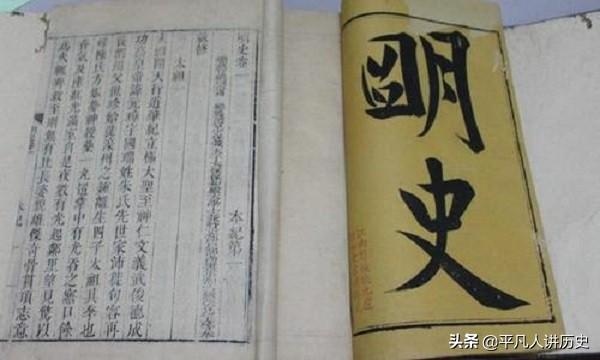 明史
明史卷一
本紀第一
敕修
太祖一
太祖開天行道肇紀立極大聖至神仁文義武俊德成
功高皇帝諱元璋字國瑞姓朱氏先世家沛徙句容再
徙泗州父世珍始徙濠州之鍾離生四子太祖其季也
母陳氏方娠夢神授藥一丸置掌中有光吞之寤口餘
香氣及產紅光滿室自是夜數有光起鄰里望見驚以
為火輒奔救至則無有比長姿貌雄傑奇骨貫頂志意
本紀
头条 @平凡人讲历史